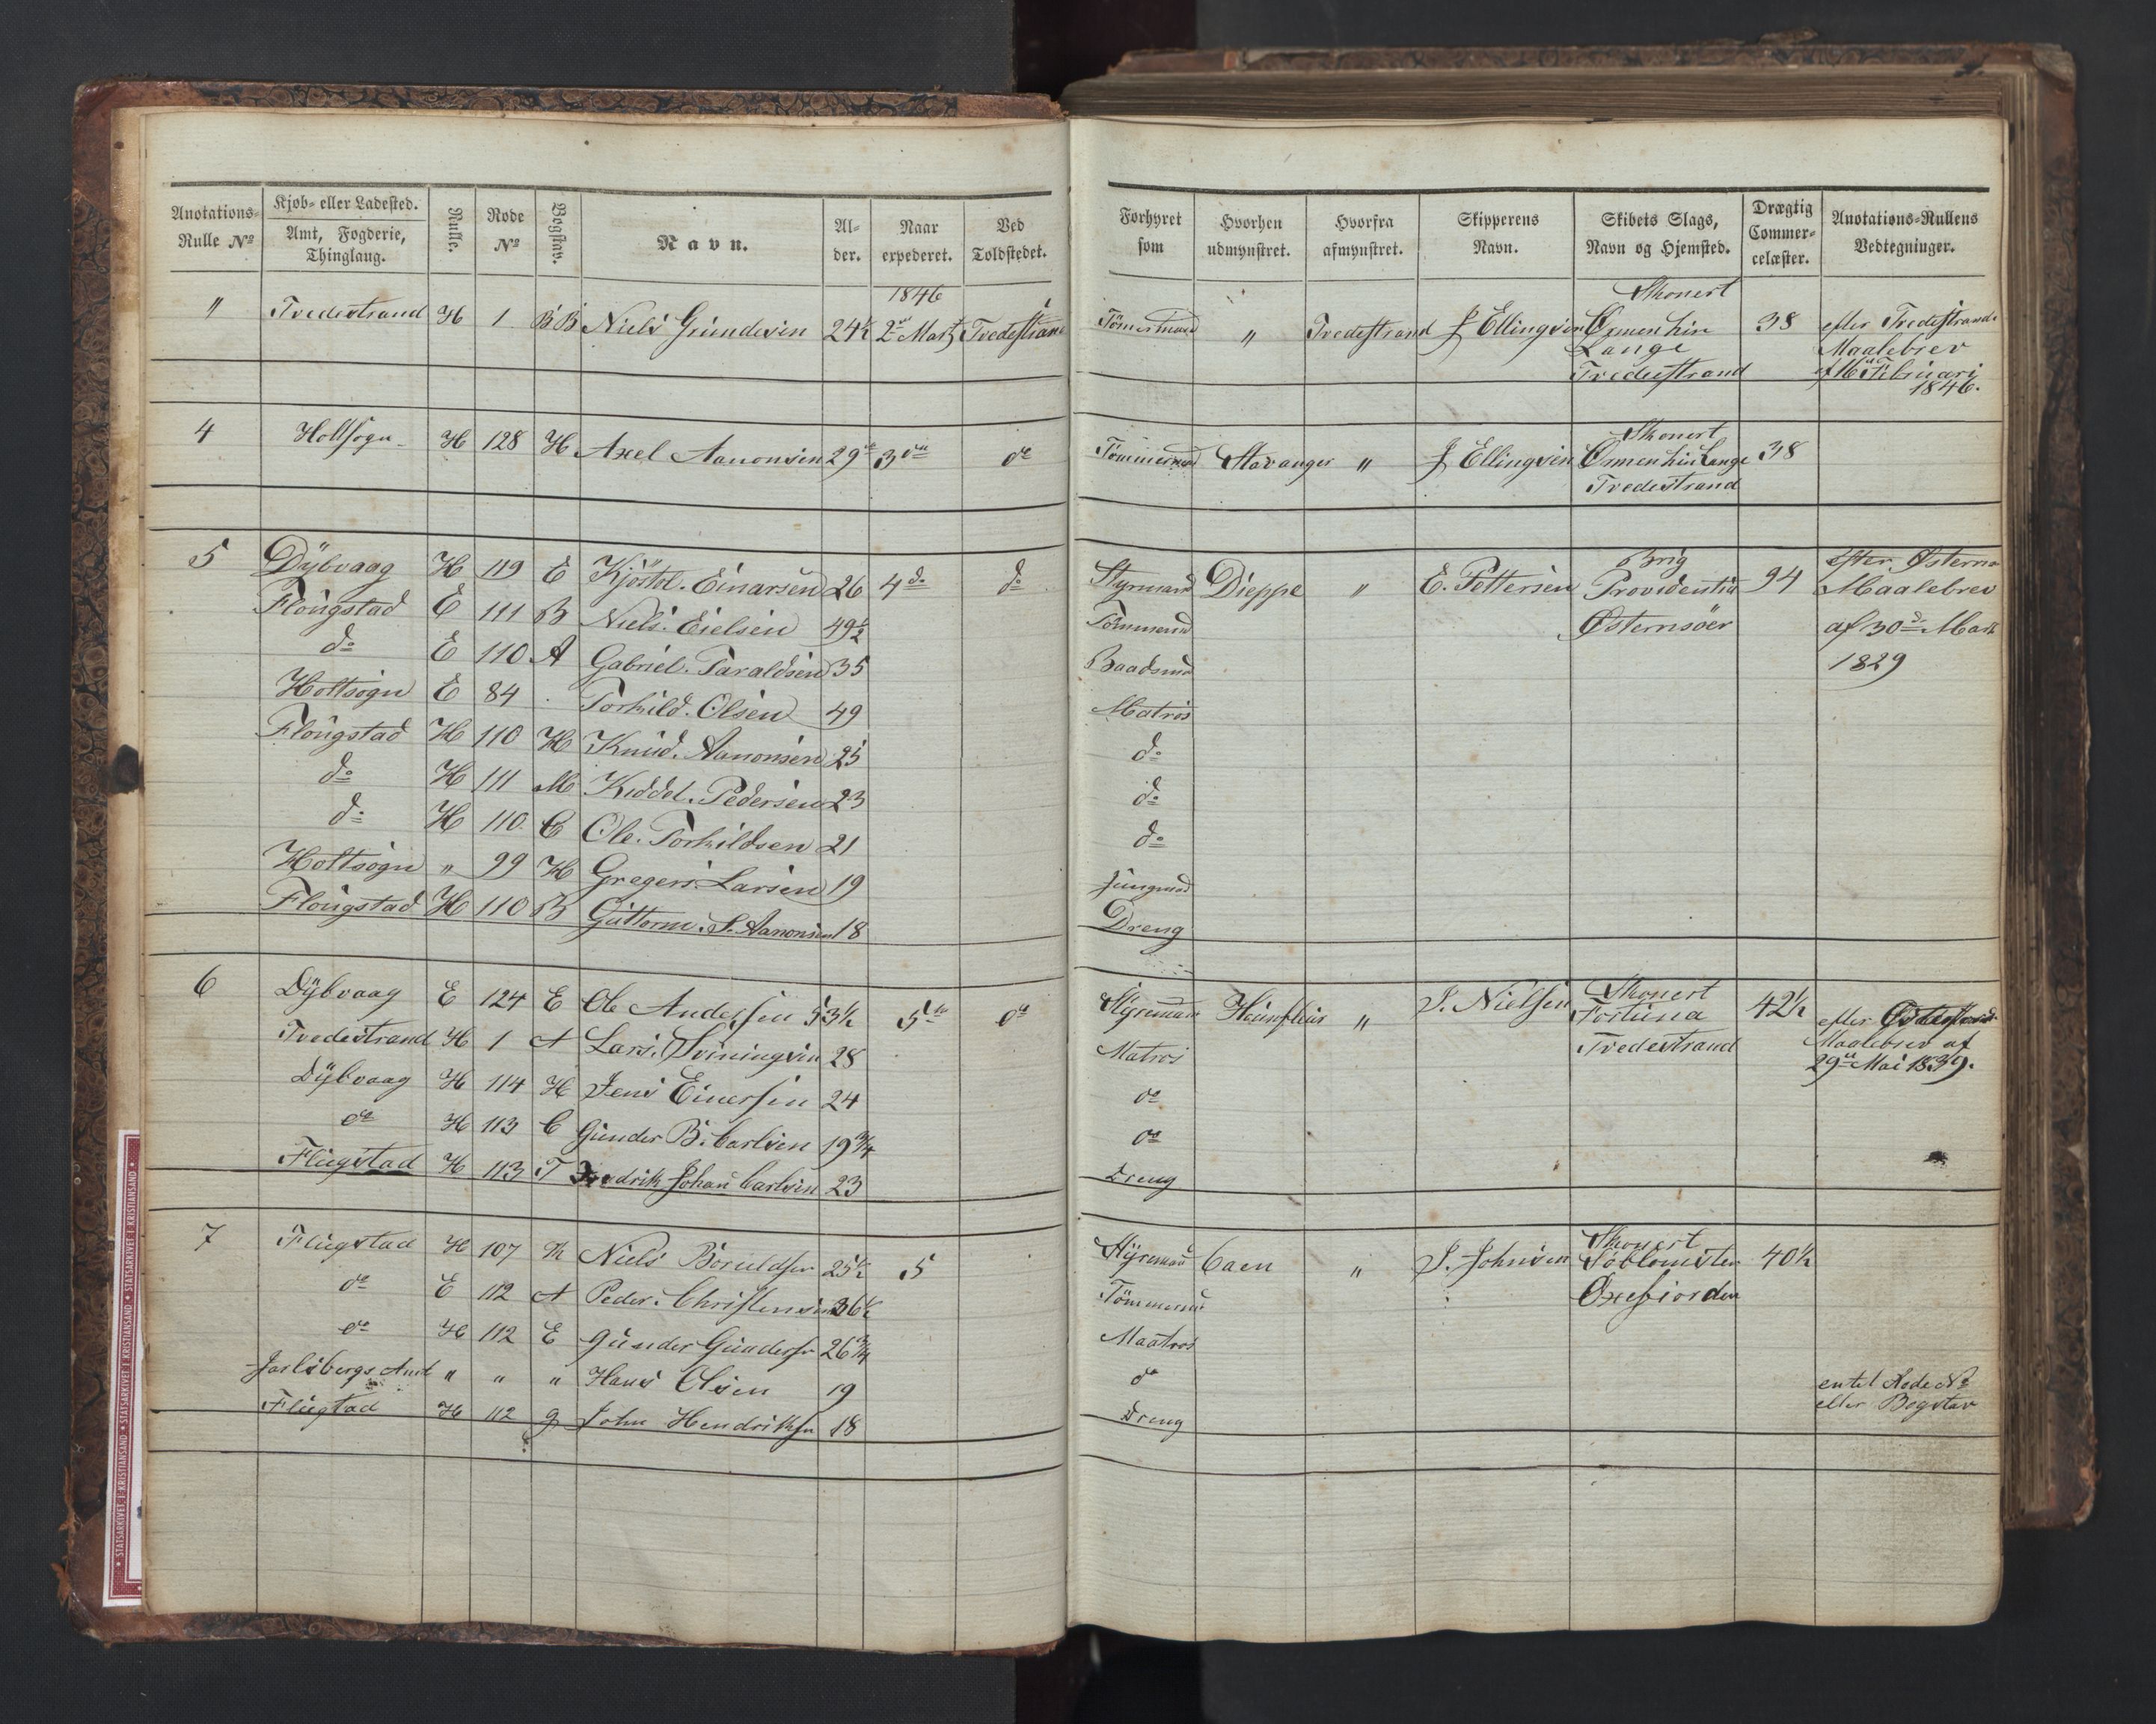 Anotations- Rulle № | Kjøb- eller Ladested. Amt, Fogderie, Thinglaug. | Rulle. | Rode № | Bogstav. | Navn. | Al- der. | Naar expederet. | Ved Toldstedet. | Forhyret som | Hvorhen udmynstret. | Hvorfra afmynstret. | Skipperens Navn. | Skibets Slags, Navn og Hjemsted. | Drægtig Commer- celæster. | Anotations-Rullens Vedtegninger.
1846
" Tvedestrand H 1 BB Niels Gundersen 24½ 2den Martz Tvedestrand Tömermand " Tvedestrand J Ellingsen Skonert Ormen hin Lange Tvedestrand 38 efter Tvedestrands Maalebrev af Februari 1846.
4 Holtsogn H 128 H Axel Aanonsen 29 3die do Tömmermand Stavanger " J Ellingsen Skonert Ormen hin Lange Tvedestrand 38
5 Dÿbvaag H 119 E Kjöstel. Einarsen 26 4 do do Styrmand Dieppe " E. Pettersen Brig Providentia Østerrisöer 94 efter Østerrisö Maalebrev af 30d Marts 1829
Flougstad E 111 B Niels. Eielsen 49½ Tömmermd
do E 110 A Gabriel. Taraldsen 35 Baadsmd
Holtsogn E 84 . Torkild. Olsen 49 Matros
Flougstad H 110 H Knud. Aanonsen 25 do
do H 111 M Keddel. Pedersen 23 do
do H 110 C Ole. Torkildsen 21 do
Holtsogn " 99 H Gregers. Larsen 19 Jungmd
Flougstad H 110 B Guttorm. S. Aanonsen 18 Dreng
6 Dÿbvaag E 124 E Ole Andersen 53½ 5te do Styrmand Hounfleur " J. Nielsen Skonert Fortuna Tvedestrand 42½ efter Maalebrev af 29de Mai 1839.
Tvedestrand H 1 A Lars. Sviningsen 28 Matros
Dÿbvaag H 114 H Jens Einersen 24 do
do H 113 C Gunder B. Carlsen 19¾ do
Flugstad H 113 T Fredrik Johan Carlsen 23 Dreng
7 Flugstad H 107 K Niels Boruldsen 25½ 5 Styrmand Caen " J. Johnsen Skonert Söblomsten Oxefiorden 40½
do E 112 A Peder. Christensen 36½ Tömmermd
do H 112 E Gunder Gundersen 26¾ Maatros
Jarlsbergs Amt " " " Hans Olsen 19 do entet Rode № eller Bogstav
Flugtad H 112 G John Hendriksen 18 Dreng
• STATSARKIVET I KRISTIANSAND • STATSARKIVET I KRISTIANSAND • STATSARKIVET I KRISTIANSAND •